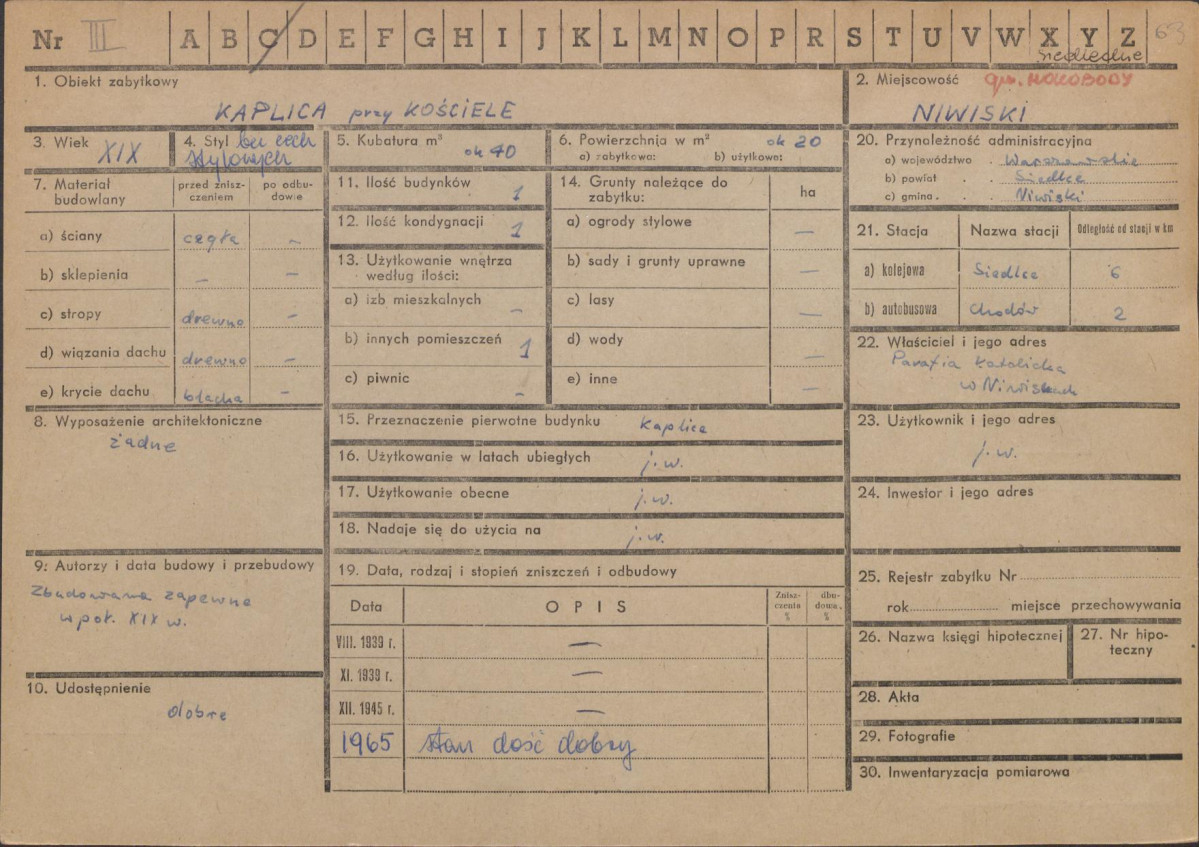 Nr III A B C D E F G H I J K L M N O P R S T U V W X Y Z 63
siedleckie
1. Obiekt zabytkowy
KAPLICA przy KOŚCIELE
2. Miejscowość gm. MOKOBODY
NIWISKI
3. Wiek XIX
4. Styl bez cech
stylowych
5. Kubatura m³ ok 40
6. Powierzchnia w m² ok 20
a) zabytkowa: b) użytkowa:
7. Materiał
budowlany
przed znisz-
czeniem
po odbu-
dowie
a) ściany cegła –
b) sklepienia – –
c) stropy drewno –
d) wiązania dachu drewno –
e) krycie dachu blacha –
8. Wyposażenie architektoniczne
żadne
9. Autorzy i data budowy i przebudowy
Zbudowana zapewne
w poł. XIX w.
10. Udostępnienie
dobre
11. Ilość budynków 1
12. Ilość kondygnacji 1
13. Użytkowanie wnętrza
według ilości:
a) izb mieszkalnych –
b) innych pomieszczeń 1
c) piwnic –
14. Grunty należące do
zabytku:
ha
a) ogrody stylowe –
b) sady i grunty uprawne –
c) lasy –
d) wody –
e) inne –
15. Przeznaczenie pierwotne budynku kaplica
16. Użytkowanie w latach ubiegłych j.w.
17. Użytkowanie obecne j.w.
18. Nadaje się do użycia na j.w.
19. Data, rodzaj i stopień zniszczeń i odbudowy
Data OPIS
Znisz-
czenia
%
dbu-
dowa.
%
VIII. 1939 r. –
XI. 1939 r. –
XII. 1945 r. –
1965 stan dość dobry
20. Przynależność administracyjna
a) województwo . Warszawskie
b) powiat . . Siedlce
c) gmina . . Niwiski
21. Stacja Nazwa stacji Odległość od stacji w km
a) kolejowa Siedlce 6
b) autobusowa Chodów 2
22. Właściciel i jego adres
Parafia katolicka
w Niwiskach
23. Użytkownik i jego adres
j.w.
24. Inwestor i jego adres
25. Rejestr zabytku Nr
rok miejsce przechowywania
26. Nazwa księgi hipotecznej
27. Nr hipo-
teczny
28. Akta
29. Fotografie
30. Inwentaryzacja pomiarowa